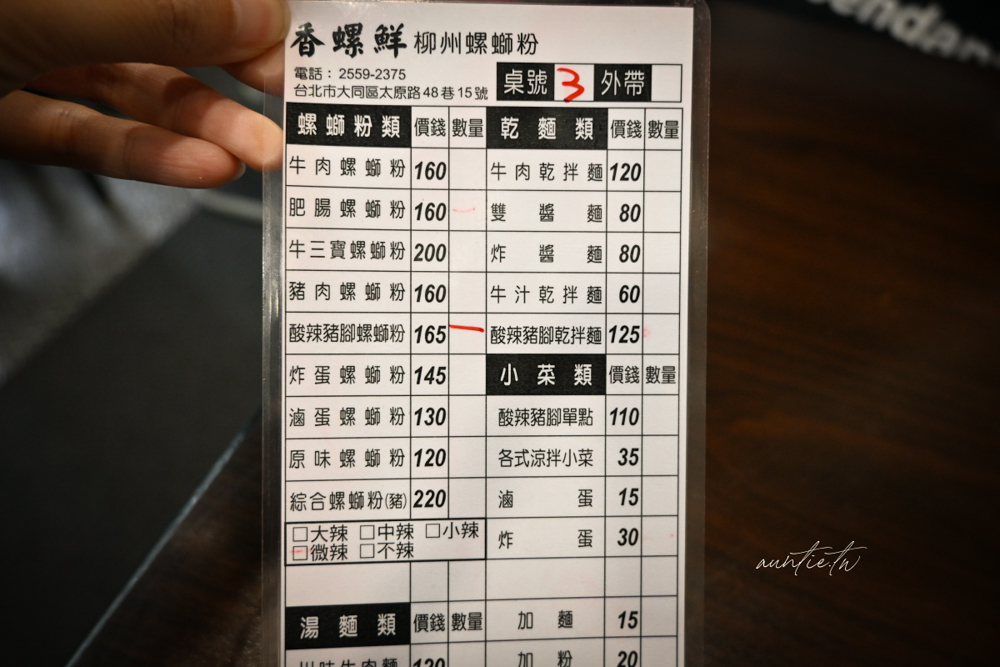 香螺鮮 柳州螺螄粉
電話：2559-2375
台北市大同區太原路48巷15號
桌號 3 外帶
螺螄粉類 價錢 數量
牛肉螺螄粉 160
肥腸螺螄粉 160
牛三寶螺螄粉 200
豬肉螺螄粉 160
酸辣豬腳螺螄粉 165
炸蛋螺螄粉 145
滷蛋螺螄粉 130
原味螺螄粉 120
綜合螺螄粉(豬) 220
□大辣 □中辣 □小辣
□微辣 □不辣
湯麵類 價錢 數量
川味牛肉麵 120
乾麵類 價錢 數量
牛肉乾拌麵 120
雙醬麵 80
炸醬麵 80
牛汁乾拌麵 60
酸辣豬腳乾拌麵 125
小菜類 價錢 數量
酸辣豬腳單點 110
各式涼拌小菜 35
滷蛋 15
炸蛋 30
加麵 15
加粉 20
auntie.tw